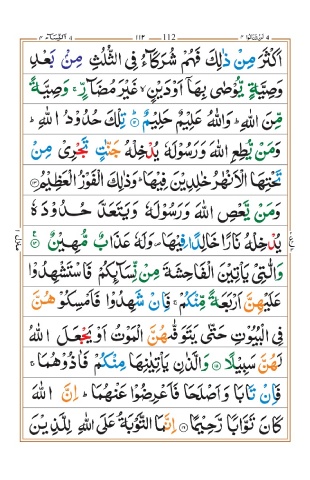 لن تنالوا ٤ 112 ١١٣ النسآء ٤
اَكْثَرَ مِنْ ذٰلِكَ فَهُمْ شُرَكَآءُ فِى الثُّلُثِ مِنْۢ بَعْدِ
وَصِيَّةٍ يُّوْصٰى بِهَاۤ اَوْدَيْنٍۙ غَيْرَ مُضَآرٍّۚ وَصِيَّةً
مِّنَ اللّٰهِؕ وَاللّٰهُ عَلِيْمٌ حَلِيْمٌؕ ۝ تِلْكَ حُدُوْدُ اللّٰهِؕ
وَمَنْ يُّطِعِ اللّٰهَ وَرَسُوْلَهٗ يُدْخِلْهُ جَنّٰتٍ تَجْرِىْ مِنْ
تَحْتِهَا الْاَنْهٰرُ خٰلِدِيْنَ فِيْهَاؕ وَذٰلِكَ الْفَوْزُ الْعَظِيْمُ ۝
وَمَنْ يَّعْصِ اللّٰهَ وَرَسُوْلَهٗ وَيَتَعَدَّ حُدُوْدَهٗ
يُدْخِلْهُ نَارًا خَالِدًا فِيْهَا وَلَهٗ عَذَابٌ مُّهِيْنٌ ۝
وَالّٰتِىْ يَاْتِيْنَ الْفَاحِشَةَ مِنْ نِّسَآئِكُمْ فَاسْتَشْهِدُوْا
عَلَيْهِنَّ اَرْبَعَةً مِّنْكُمْۚ فَاِنْ شَهِدُوْا فَاَمْسِكُوْهُنَّ
فِى الْبُيُوْتِ حَتّٰى يَتَوَفّٰهُنَّ الْمَوْتُ اَوْ يَجْعَلَ اللّٰهُ
لَهُنَّ سَبِيْلًا ۝ وَالَّذٰنِ يَاْتِيٰنِهَا مِنْكُمْ فَاٰذُوْهُمَاۚ
فَاِنْ تَابَا وَاَصْلَحَا فَاَعْرِضُوْا عَنْهُمَاؕ اِنَّ اللّٰهَ
كَانَ تَوَّابًا رَّحِيْمًا ۝ اِنَّمَا التَّوْبَةُ عَلَى اللّٰهِ لِلَّذِيْنَ